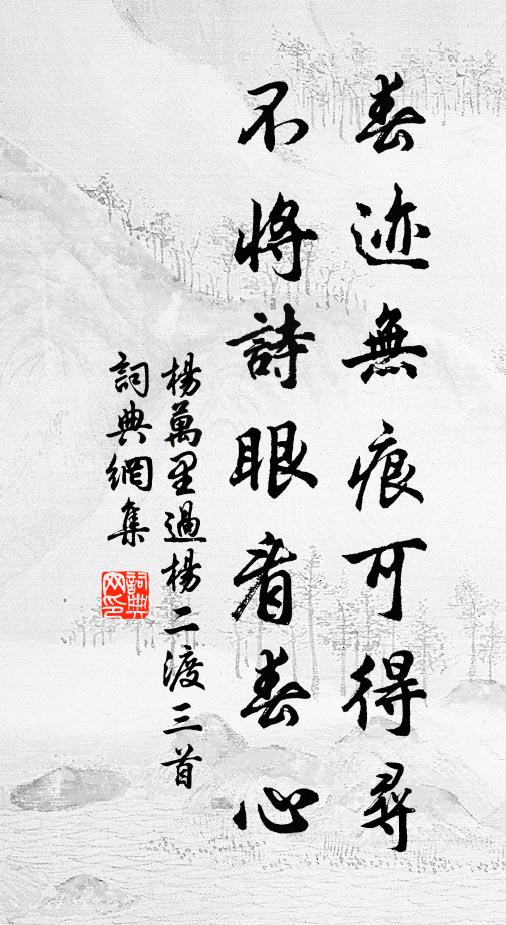 春迹無痕可得尋
不將詩眼看春心
楊萬里過楊二渡三首
詞典網集
詞典网印